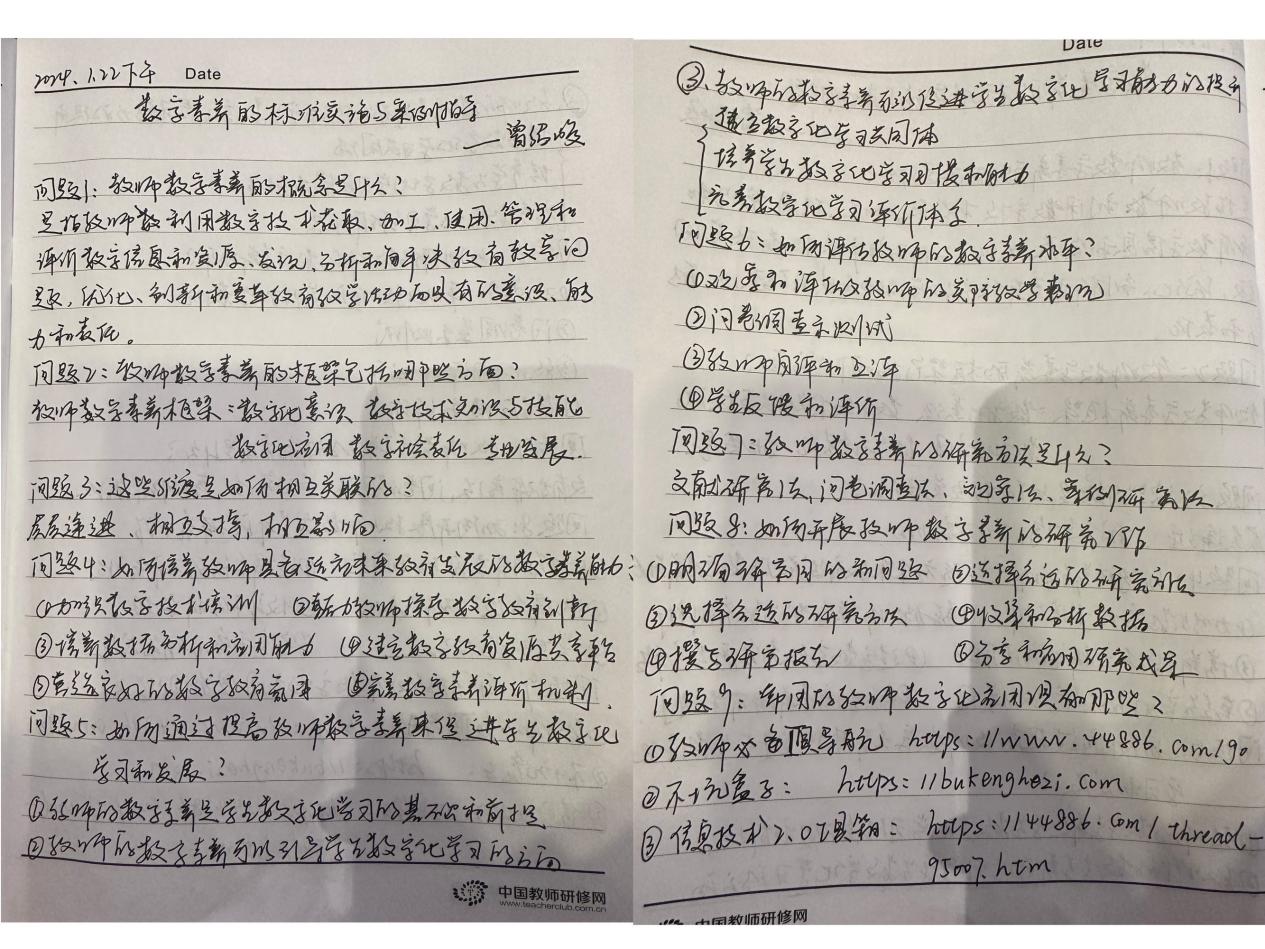 2024.1.22下午 Date
数字素养的标准实论与案例指导
——曾绍
问题1：教师数字素养的概念是什么？
是指教师利用数字技术获取、加工、使用、管理和
评价数字信息和资源、发现、分析和解决教育教学问
题，优化、创新和变革教育教学活动而具有的意识、能
力和责任。
问题2：教师数字素养的框架包括哪些方面？
教师数字素养框架：数字化意识 数字技术知识与技能
数字化应用 数字社会责任 专业发展.
问题3：这些维度是如何相互关联的？
层层递进、相互支撑，相互影响
问题4：如何培养教师具备适应未来教育发展的数字素养能力？
①加强数字技术培训 ②鼓励教师探索数字教育创新
③培养数据分析和应用能力 ④建立数字教育资源共享平台
⑤营造良好的数字教育氛围 ⑥完善数字素养评价机制.
问题5：如何通过提高教师数字素养来促进学生数字化
学习和发展？
①教师的数字素养是学生数字化学习的基础和前提
②教师的数字素养可以引导学生数字化学习的方向
中国教师研修网
www.teacherclub.com.cn
Date
③.教师的数字素养可以促进学生数字化学习能力的提升
建立数字化学习共同体
培养学生数字化学习习惯和能力
完善数字化学习评价体系.
问题6：如何评估教师的数字素养水平？
①观察和评估教师的教学表现
②问卷调查和测试
③教师自评和互评
④学生反馈和评价
问题7：教师数字素养的研究方法是什么？
文献研究法、问卷调查法、观察法、案例研究法
问题8：如何开展教师数字素养的研究工作
①明确研究目的和问题 ②选择合适的研究方法
③选择合适的研究方法 ④收集和分析数据
④撰写研究报告 ⑥分享和应用研究成果
问题9：常用的教师数字化应用具有哪些？
①教师必备导航 https://www.44886.com/90
②不坑盒子： https://bukenghezi.com
③信息技术2.0工具箱： https://44886.com/thread-
95007.htm
中国教师研修网